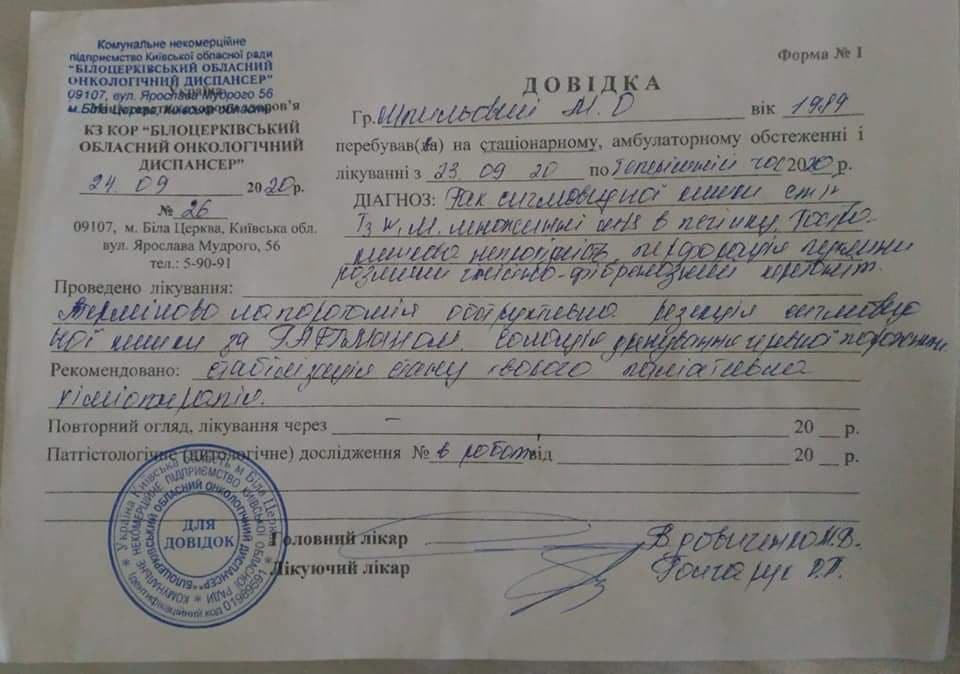 Комунальне некомерційне
підприємство Київської обласної ради
"БІЛОЦЕРКІВСЬКИЙ ОБЛАСНИЙ
ОНКОЛОГІЧНИЙ ДИСПАНСЕР"
09107, вул. Ярослава Мудрого 56
м. Біла Церква, Київської області
Україна
Міністерство охорони здоров'я
КЗ КОР "БІЛОЦЕРКІВСЬКИЙ
ОБЛАСНИЙ ОНКОЛОГІЧНИЙ
ДИСПАНСЕР"
24. 09 2020р.
№ 26
09107, м. Біла Церква, Київська обл.
вул. Ярослава Мудрого, 56
тел.: 5-90-91
Форма № 1
ДОВІДКА
Гр. М. О вік 1989
перебував(ла) на стаціонарному, амбулаторному обстеженні і
лікуванні з 23. 09 20 по теперішній час 2020 р.
ДІАГНОЗ: Рак сигмовидної кишки ст
множинні в печінку. Гостра
кишкова непрохідність, перфорація пухлини
розлитий гнійно-фібринозний перитоніт.
Проведено лікування:
Терміново лапоротомія обструктивна резекція сигмовид
ної кишки за ГАРТМАНОМ. санація дренування черевної порожнини.
Рекомендовано: стабілізація стану хворого паліативна
хіміотерапія.
Повторний огляд, лікування через – 20 __ р.
Патгістологічне (цитологічне) дослідження № в роботі від 20 __ р.
Україна Київська область м Біла Церква
КОМУНАЛЬНЕ НЕКОМЕРЦІЙНЕ ПІДПРИЄМСТВО КИЇВСЬКОЇ ОБЛАСНОЇ РАДИ
"БІЛОЦЕРКІВСЬКИЙ ОБЛАСНИЙ ОНКОЛОГІЧНИЙ ДИСПАНСЕР"
ДЛЯ
ДОВІДОК
Головний лікар
Лікуючий лікар Гончарук